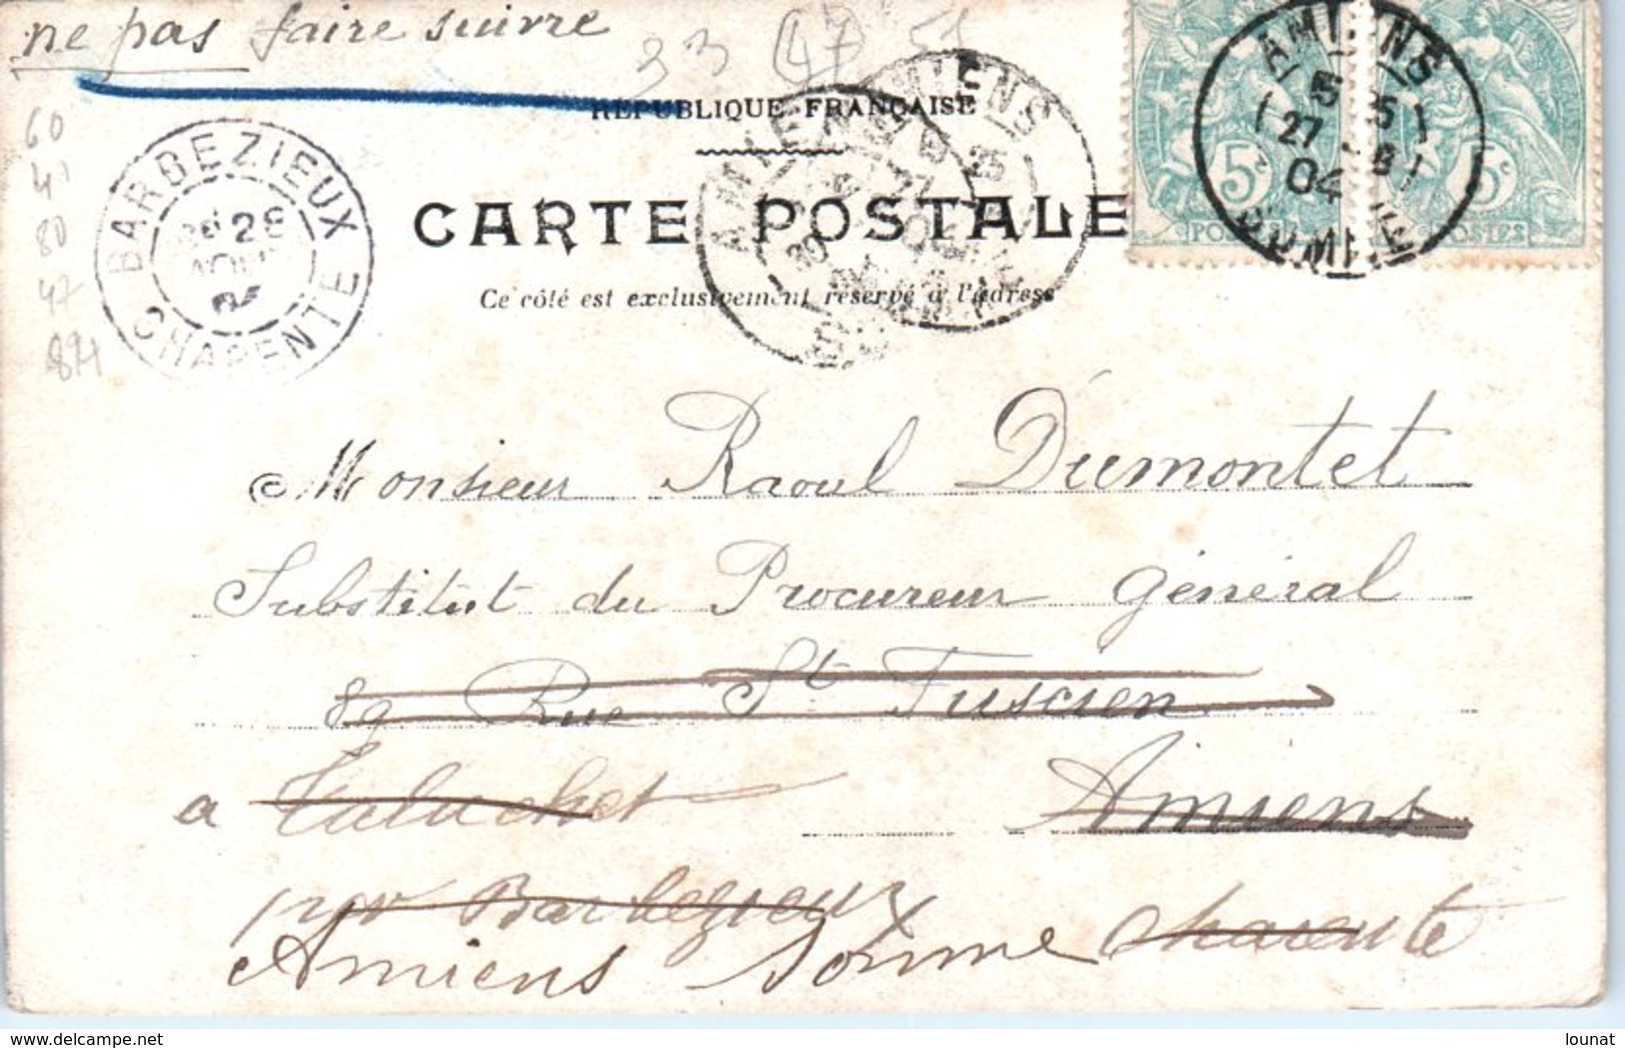 ne pas faire suivre
33 (47 51
REPUBLIQUE FRANÇAISE
CARTE POSTALE
Ce côté est exclusivement réservé à l'adresse
60
41
80
47
BARBEZIEUX
28
CHARENTE
AMIENS
AMIENS
25
AMIENS
5 25
27 8
04
SOMME
5c 5c
POSTES POSTES
Monsieur Raoul Dumontet
Substitut du Procureur Général
89 Rue St Fuscien
a Amiens
Barbezieux Charente
Amiens Somme
delcampe.net
lounat